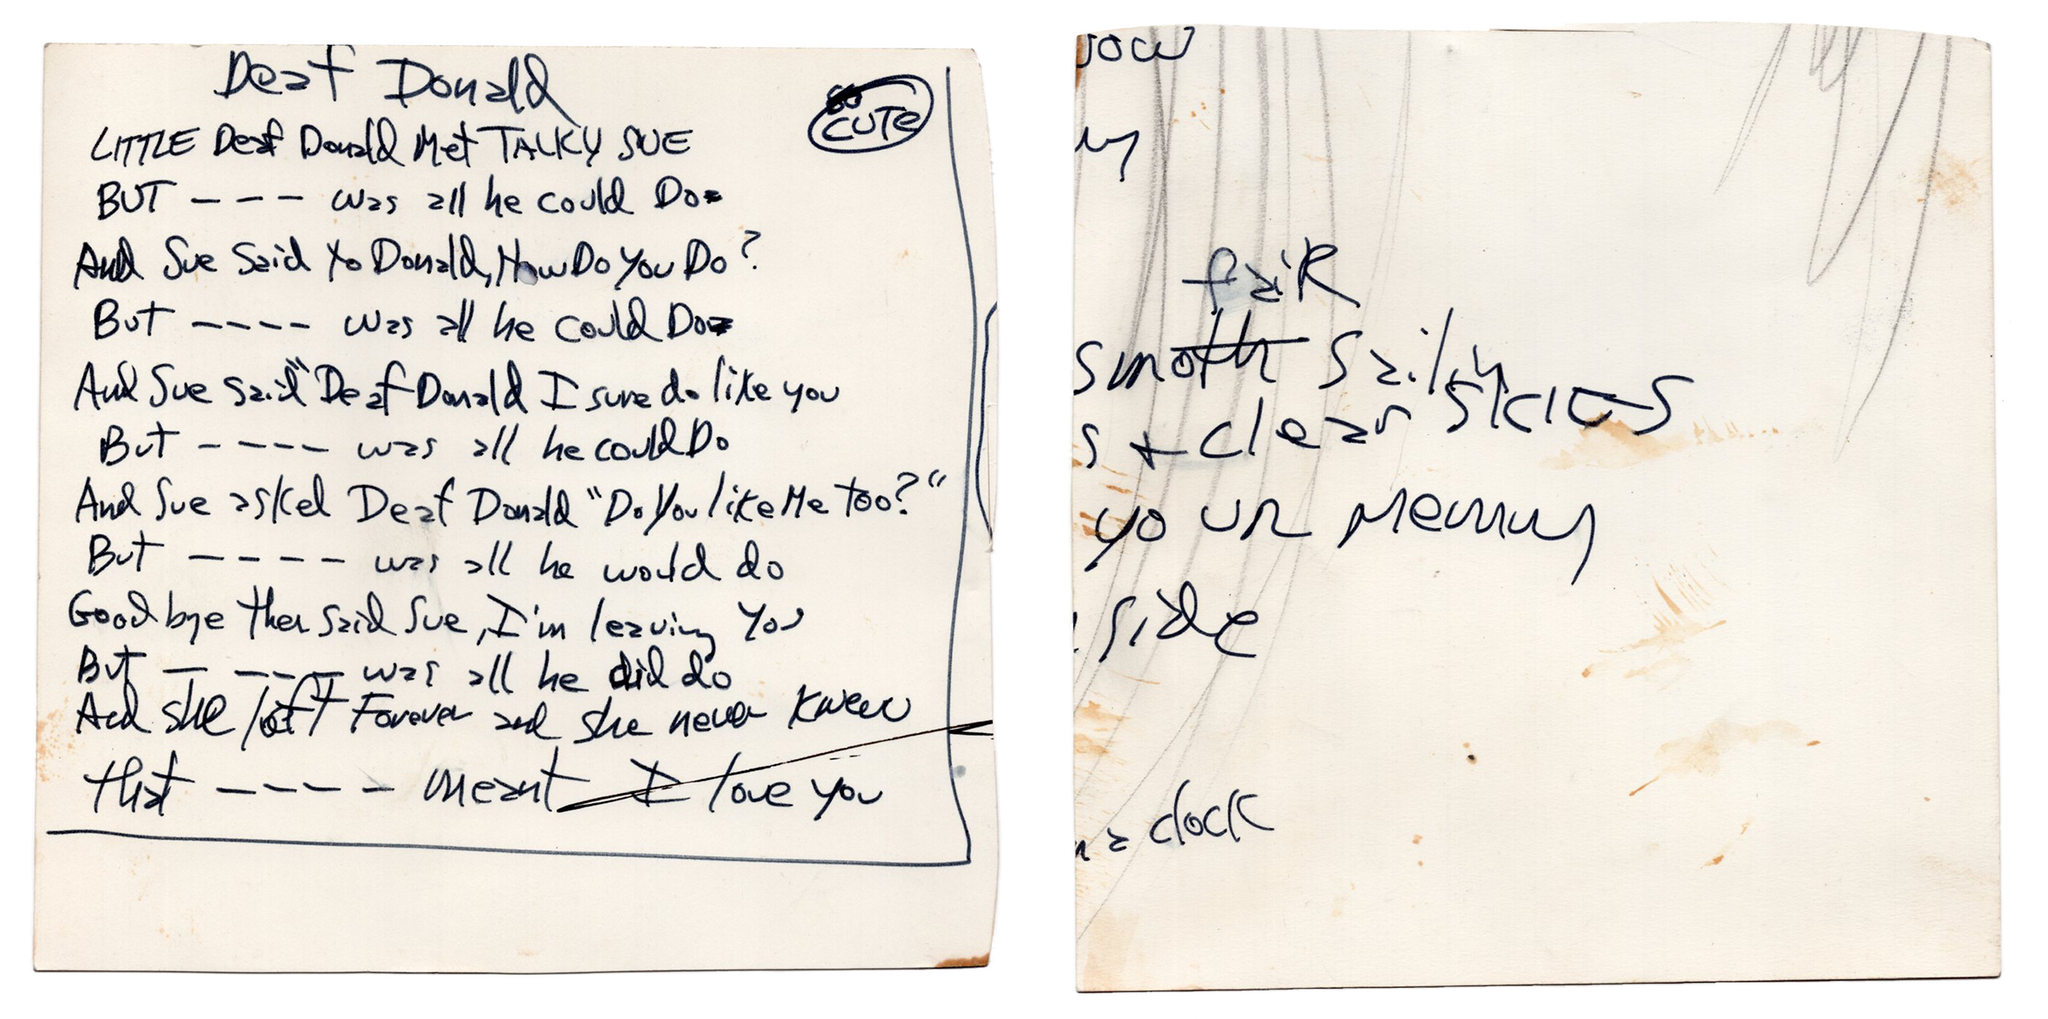 Deaf Donald
so
CUTE
LITTLE Deaf Donald Met TALKY SUE
BUT ‒ ‒ ‒ ‒ was all he could Do
And Sue said to Donald, How Do You Do?
But ‒ ‒ ‒ ‒ was all he could Do
And Sue said "Deaf Donald I sure do like you
But ‒ ‒ ‒ ‒ was all he could Do
And Sue asked Deaf Donald "Do You like Me too?"
But ‒ ‒ ‒ ‒ was all he would do
Goodbye then said Sue, I'm leaving You
But ‒ ‒ ‒ ‒ was all he did do
And she left Forever and she never knew
that ‒ ‒ ‒ ‒ meant I love you
fair
smoth sailin
s + clear skies
your memory
side
a clock